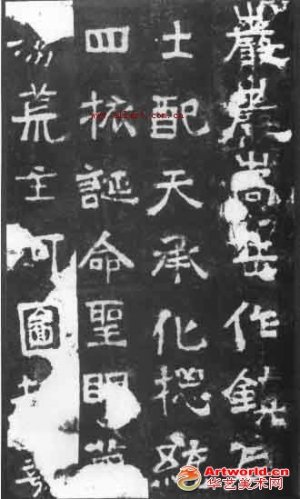 巖巖嵩岳作鎮
土配天承化揔統
四誕命聖明
荒主河圖
Artworld.cn
华艺美术网